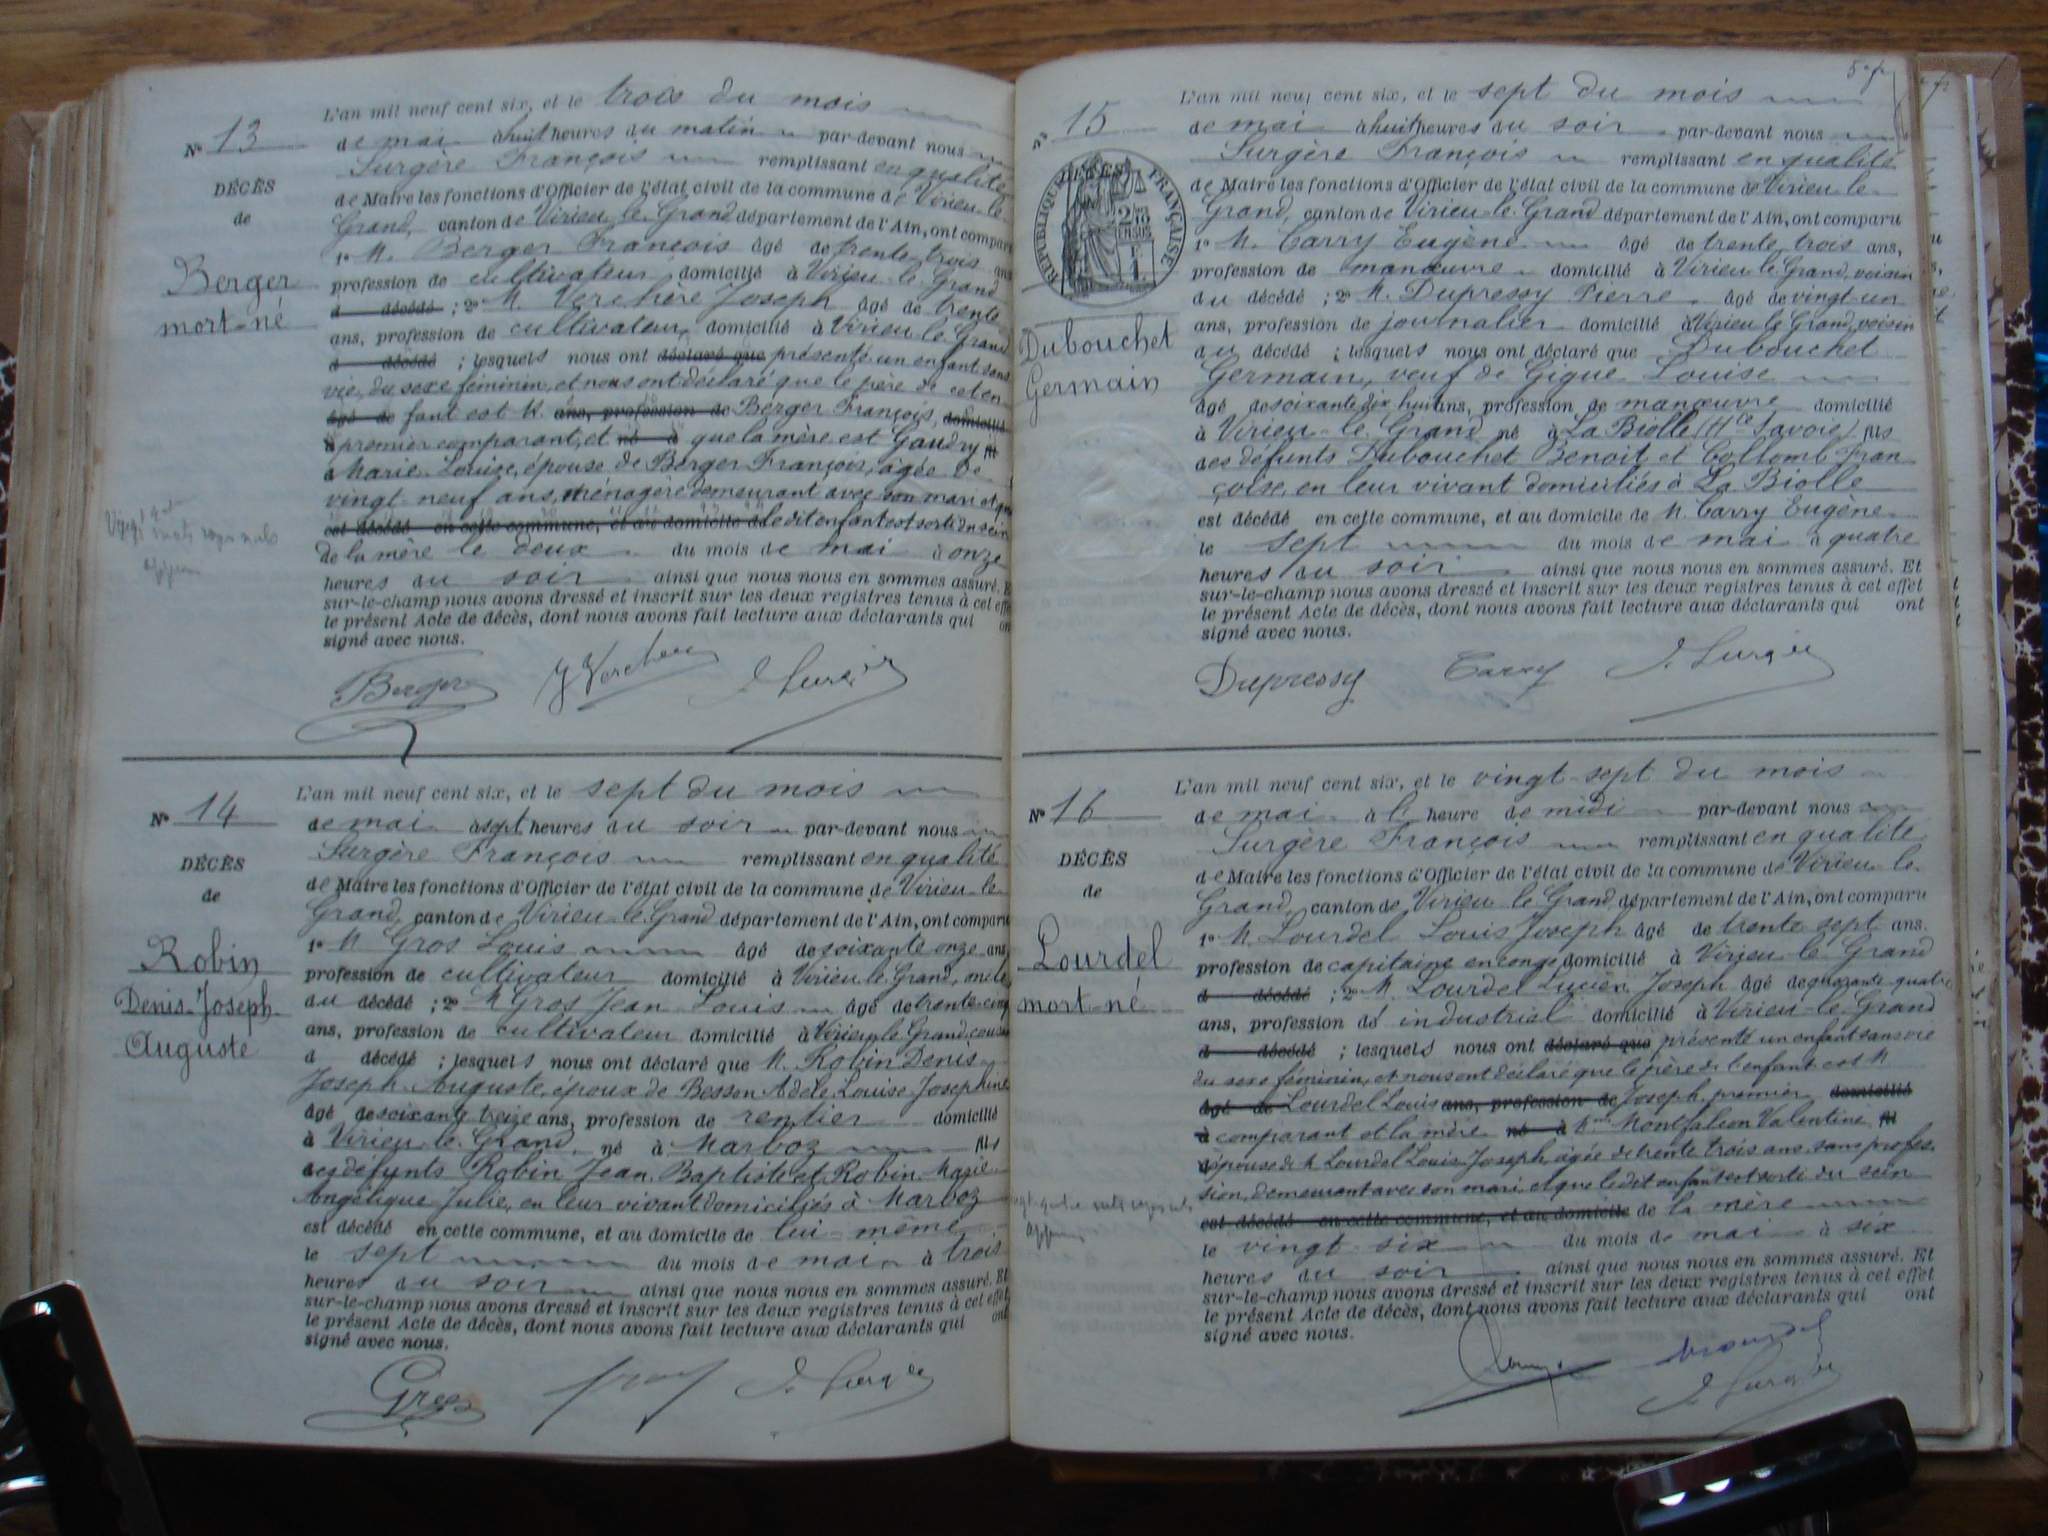 L'an mil neuf cent six, et le trois du mois
N° 13
de mai à huit heures du matin par-devant nous
Surgère François remplissant en qualité
DÉCÈS
de Maire les fonctions d'Officier de l'état civil de la commune de Virieu-le-
de
Grand, canton de Virieu-le-Grand département de l'Ain, ont comparu
1° M. Berger François âgé de trente trois ans
Berger
profession de cultivateur domicilié à Virieu-le-Grand
mort-né
d décédé ; 2° M. Verchère Joseph âgé de trente
ans, profession de cultivateur domicilié à Virieu le Grand
d décédé ; lesquels nous ont déclaré que présenté un enfant sans
vie, du sexe féminin, et nous ont déclaré que le père de cet en-
âgé de fant est M. ans, profession de Berger François, domicilié
à premier comparant, et né à que la mère est Gaudry fil
d Marie-Louise, épouse de Berger François, âgée de
vingt neuf ans, ménagère demeurant avec son mari et que
est décédé en cette commune, et au domicile de ledit enfant est sorti du sein
de la mère le deux du mois de mai à onze
heures du soir ainsi que nous nous en sommes assuré. Et
sur-le-champ nous avons dressé et inscrit sur les deux registres tenus à cet effet
le présent Acte de décès, dont nous avons fait lecture aux déclarants qui ont
signé avec nous.
Berger J Verchère J. Surgère
L'an mil neuf cent six, et le sept du mois
N° 14
de mai à sept heures du soir par-devant nous
Surgère François remplissant en qualité
DÉCÈS
de Maire les fonctions d'Officier de l'état civil de la commune de Virieu-le-
de
Grand, canton de Virieu-le-Grand département de l'Ain, ont comparu
1° M Gros Louis âgé de soixante onze ans
Robin
profession de cultivateur domicilié à Virieu-le-Grand, oncle
Denis-Joseph-
du décédé ; 2° M Gros Jean Louis âgé de trente-cinq
Auguste
ans, profession de cultivateur domicilié à Virieu le Grand, cousin
d décédé ; lesquels nous ont déclaré que M. Robin Denis-
Joseph-Auguste, époux de Besson Adèle Louise Josephine
âgé de soixante treize ans, profession de rentier domicilié
à Virieu-le-Grand, né à Marboz fils
des défunts Robin Jean-Baptiste et Robin Marie-
Angélique Julie, en leur vivant domiciliés à Marboz
est décédé en cette commune, et au domicile de lui-même
le sept du mois de mai à trois
heures du soir ainsi que nous nous en sommes assuré. Et
sur-le-champ nous avons dressé et inscrit sur les deux registres tenus à cet effet
le présent Acte de décès, dont nous avons fait lecture aux déclarants qui ont
signé avec nous.
Gros J. Surgère
L'an mil neuf cent six, et le sept du mois
15
de mai à huit heures du soir par-devant nous
Surgère François remplissant en qualité
RÉPUBLIQUE FRANÇAISE
de Maire les fonctions d'Officier de l'état civil de la commune de Virieu-le-
Grand, canton de Virieu-le-Grand département de l'Ain, ont comparu
1° M. Carry Eugène âgé de trente trois ans,
profession de manœuvre domicilié à Virieu le Grand, voisin
du décédé ; 2° M. Dupressy Pierre âgé de vingt-un
ans, profession de journalier domicilié à Virieu le Grand, voisin
Dubouchet
du décédé ; lesquels nous ont déclaré que Dubouchet
Germain
Germain, veuf de Gigue Louise
âgé de soixante dix huit ans, profession de manœuvre domicilié
à Virieu-le-Grand né à La Biolle (Hte Savoie) fils
des défunts Dubouchet Benoit et Collomb Fran-
çoise, en leur vivant domiciliés à La Biolle
est décédé en cette commune, et au domicile de M. Carry Eugène
le sept du mois de mai à quatre
heures du soir ainsi que nous nous en sommes assuré. Et
sur-le-champ nous avons dressé et inscrit sur les deux registres tenus à cet effet
le présent Acte de décès, dont nous avons fait lecture aux déclarants qui ont
signé avec nous.
Dupressy Carry J. Surgère
L'an mil neuf cent six, et le vingt-sept du mois
N° 16
de mai à l heure de midi par-devant nous
Surgère François remplissant en qualité
DÉCÈS
de Maire les fonctions d'Officier de l'état civil de la commune de Virieu-le-
de
Grand, canton de Virieu le Grand département de l'Ain, ont comparu
1° M Lourdel Louis Joseph âgé de trente sept ans.
Lourdel
profession de capitaine en congé domicilié à Virieu-le-Grand
mort-né
d décédé ; 2° M. Lourdel Lucien Joseph âgé de quarante quatre
ans, profession de industriel domicilié à Virieu-le-Grand
d décédé ; lesquels nous ont déclaré que présenté un enfant sans vie
du sexe féminin, et nous ont déclaré que le père de l'enfant est M
âgé de Lourdel Louis ans, profession de Joseph premier domicilié
à comparant et la mère né à Mme Montfalcon Valentine fil
d épouse de M Lourdel Louis Joseph, âgée de trente trois ans, sans profes-
sion, demeurant avec son mari et que ledit enfant est sorti du sein
est décédé en cette commune, et au domicile de la mère
le vingt-six du mois de mai à six
heures du soir ainsi que nous nous en sommes assuré. Et
sur-le-champ nous avons dressé et inscrit sur les deux registres tenus à cet effet
le présent Acte de décès, dont nous avons fait lecture aux déclarants qui ont
signé avec nous.
J. Surgère